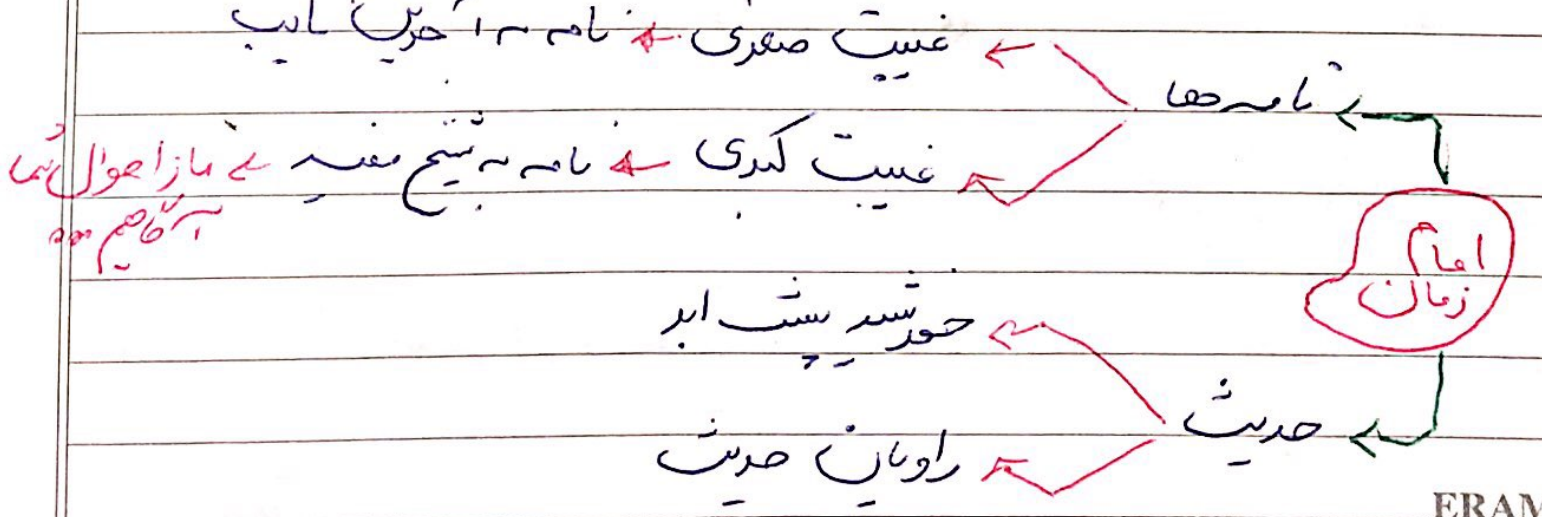 غیبت صغری ← نامه به آخرین نایب
نامه‌ها
غیبت کبری ← نامه به شیخ مفید ← ما از احوال شما
آگاهیم ...
امام
زمان
خورشید پشت ابر
حدیث
راویان حدیث
ERAM